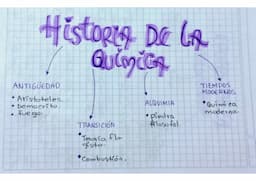 HISTORIA DE LA
QUIMICA
ANTIGÜEDAD
• Aristoteles
• Democrito
• Fuego.
TRANSICIÓN
• Teoría flo
gisto.
• Combustión.
ALQUIMIA
• Piedra
filosofal
TIEMPOS
MODERNOS
• Química
moderna